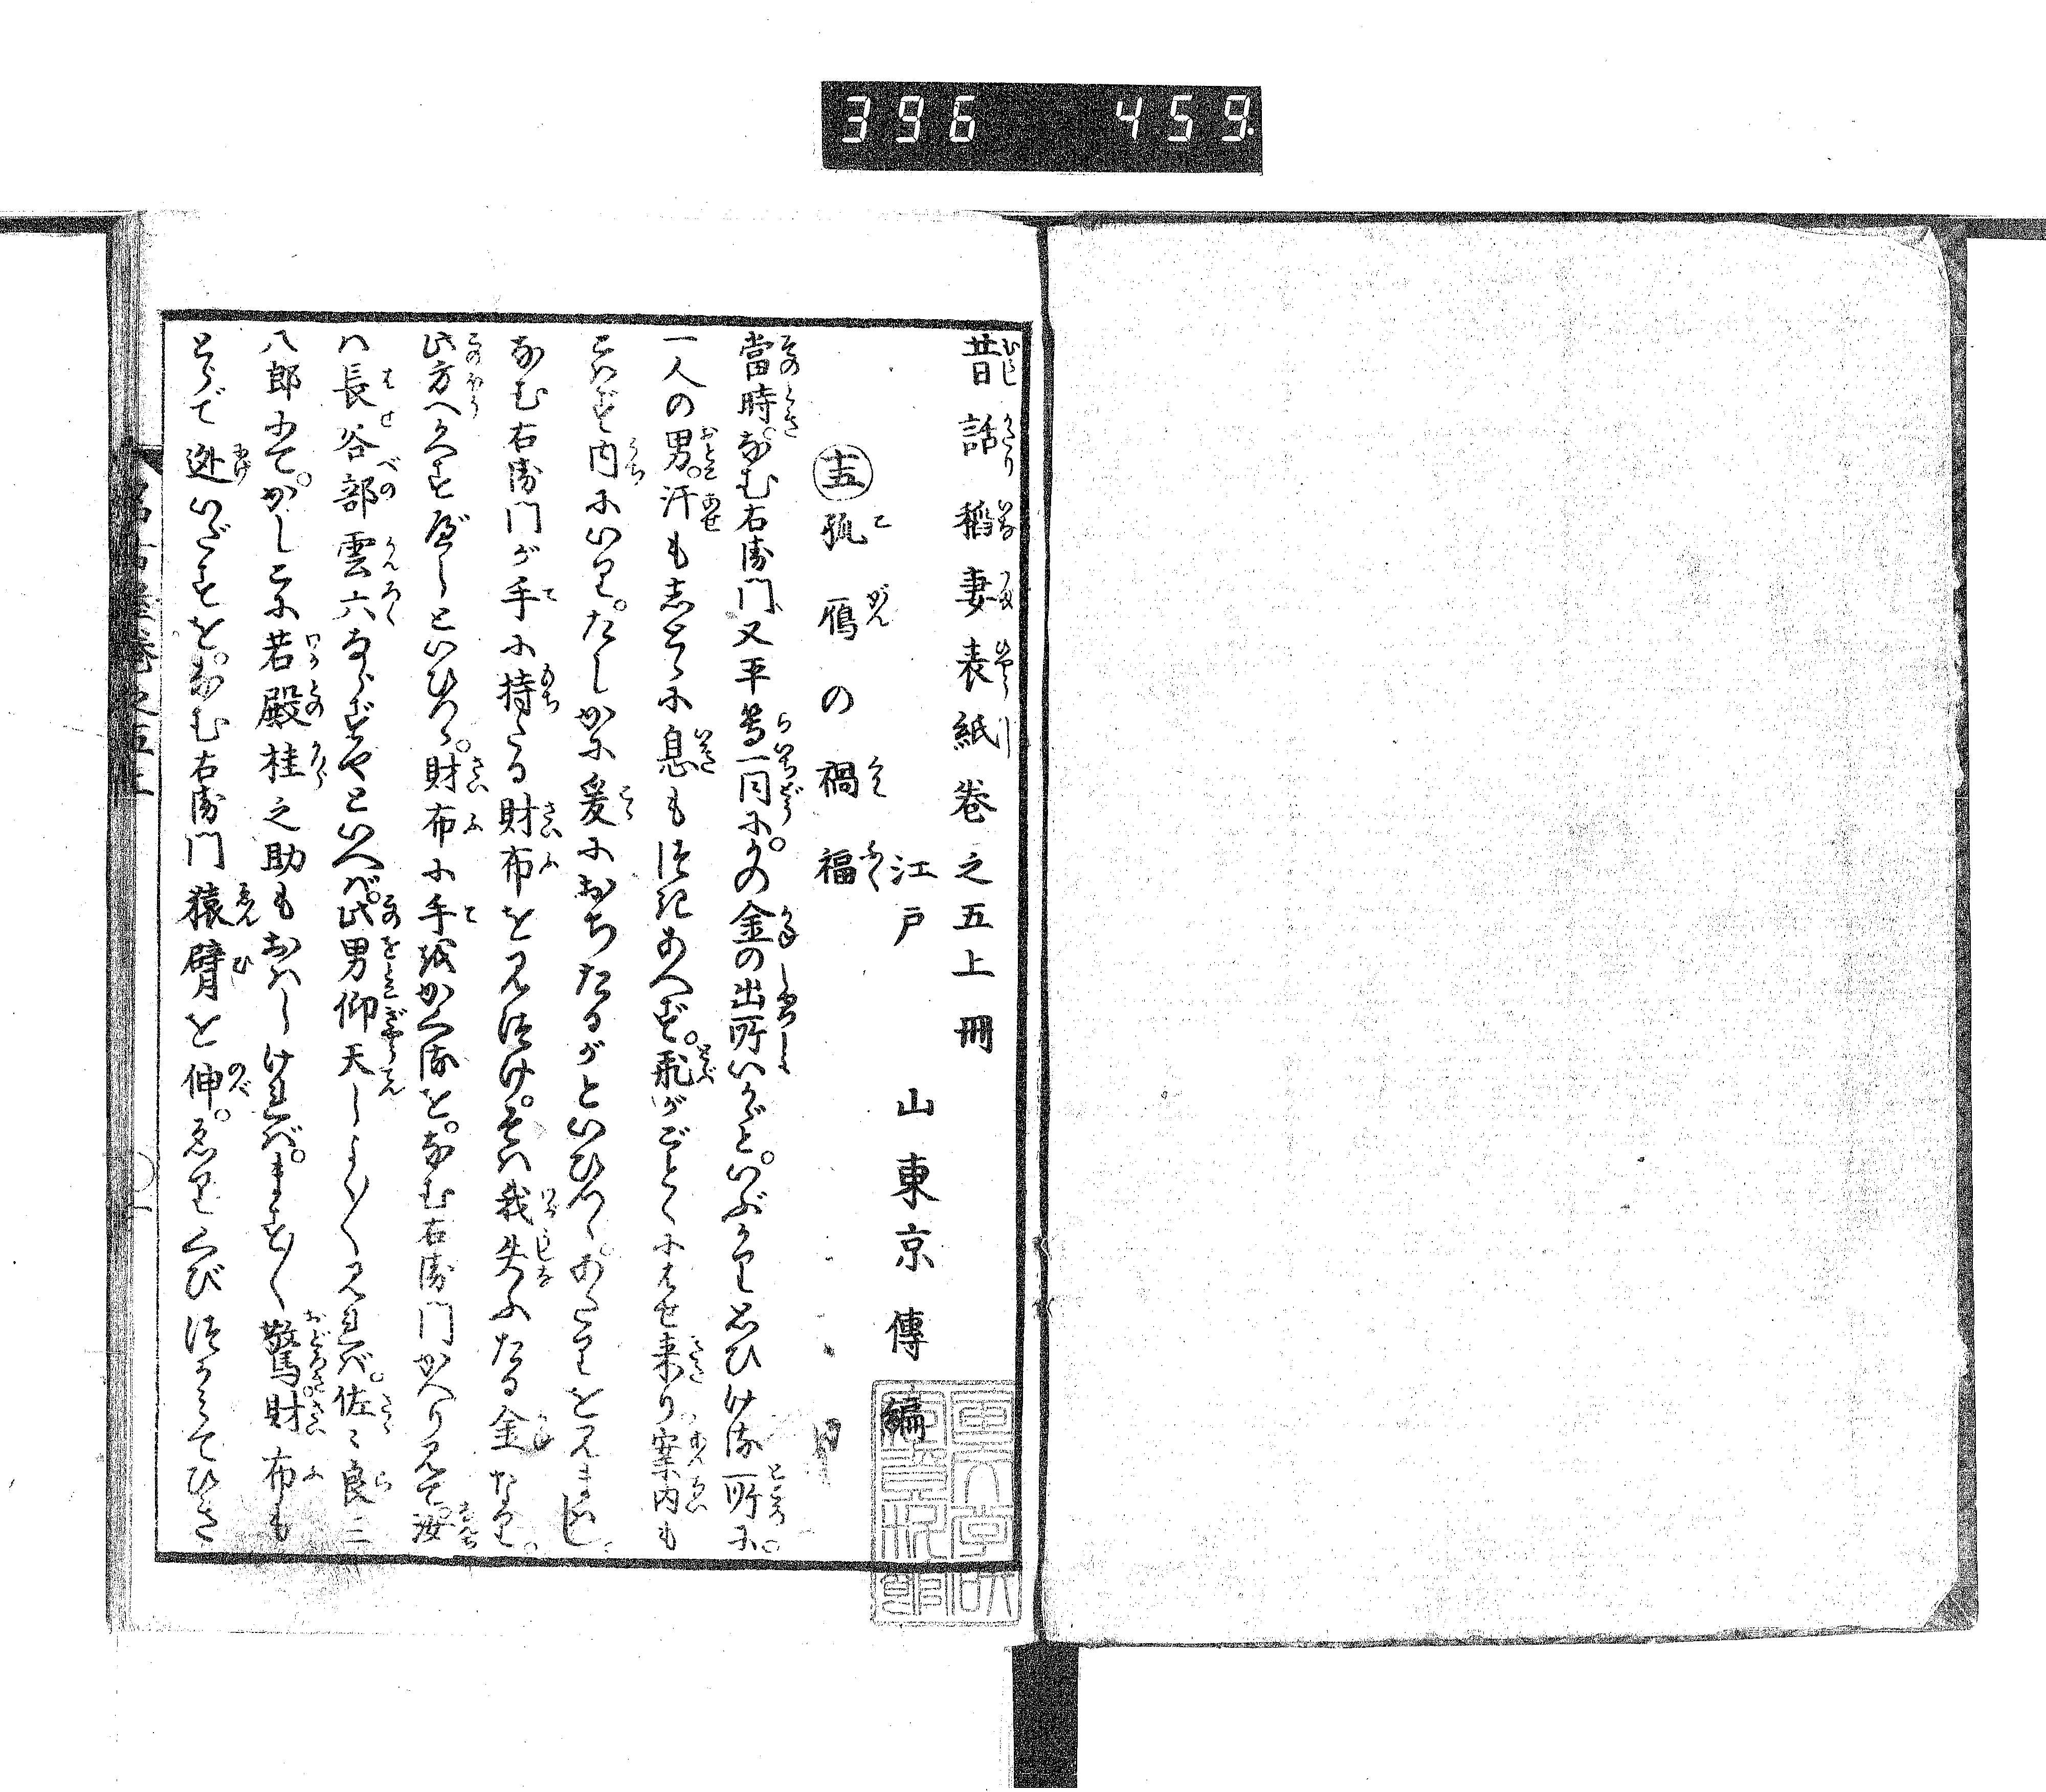 396 459
昔話稲妻表紙巻之五上冊
江戸 山東京傳編
十五 孤雁の禍福
當時。なむ右衛門又平等一同に。かの金の出所いかゞと。いぶかり思ひける所に。
一人の男。汗もしとゞに息もつきあへず。飛がごとくにはせ来り案内も
こはず内にいり。たしかに爰におちたるがといひつゝ。あたりを見まはし。
なむ右衛門が手に持たる財布を見つけ。そは我失ふたる金なり。
此方へかへすべしといひつゝ。財布に手をかくるを。なむ右衛門かへり見て汝
は長谷部雲六ならずやといへば。此男仰天しよく〳〵見れば。佐々良三
八郎にて。かしこに若殿桂之助もおはしければ。ます〳〵驚財布も
とらで迯いだすを。なむ右衛門猿臂を伸。ゑりくびつかみてひき